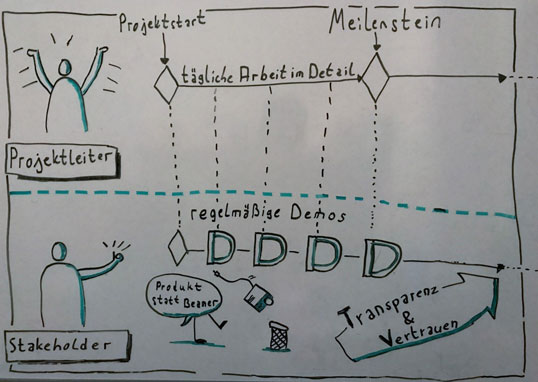 Projektstart
Meilenstein
tägliche Arbeit im Detail
Projektleiter
regelmäßige Demos
D D D D
Produkt
statt Beamer
Stakeholder
Transparenz
&
Vertrauen